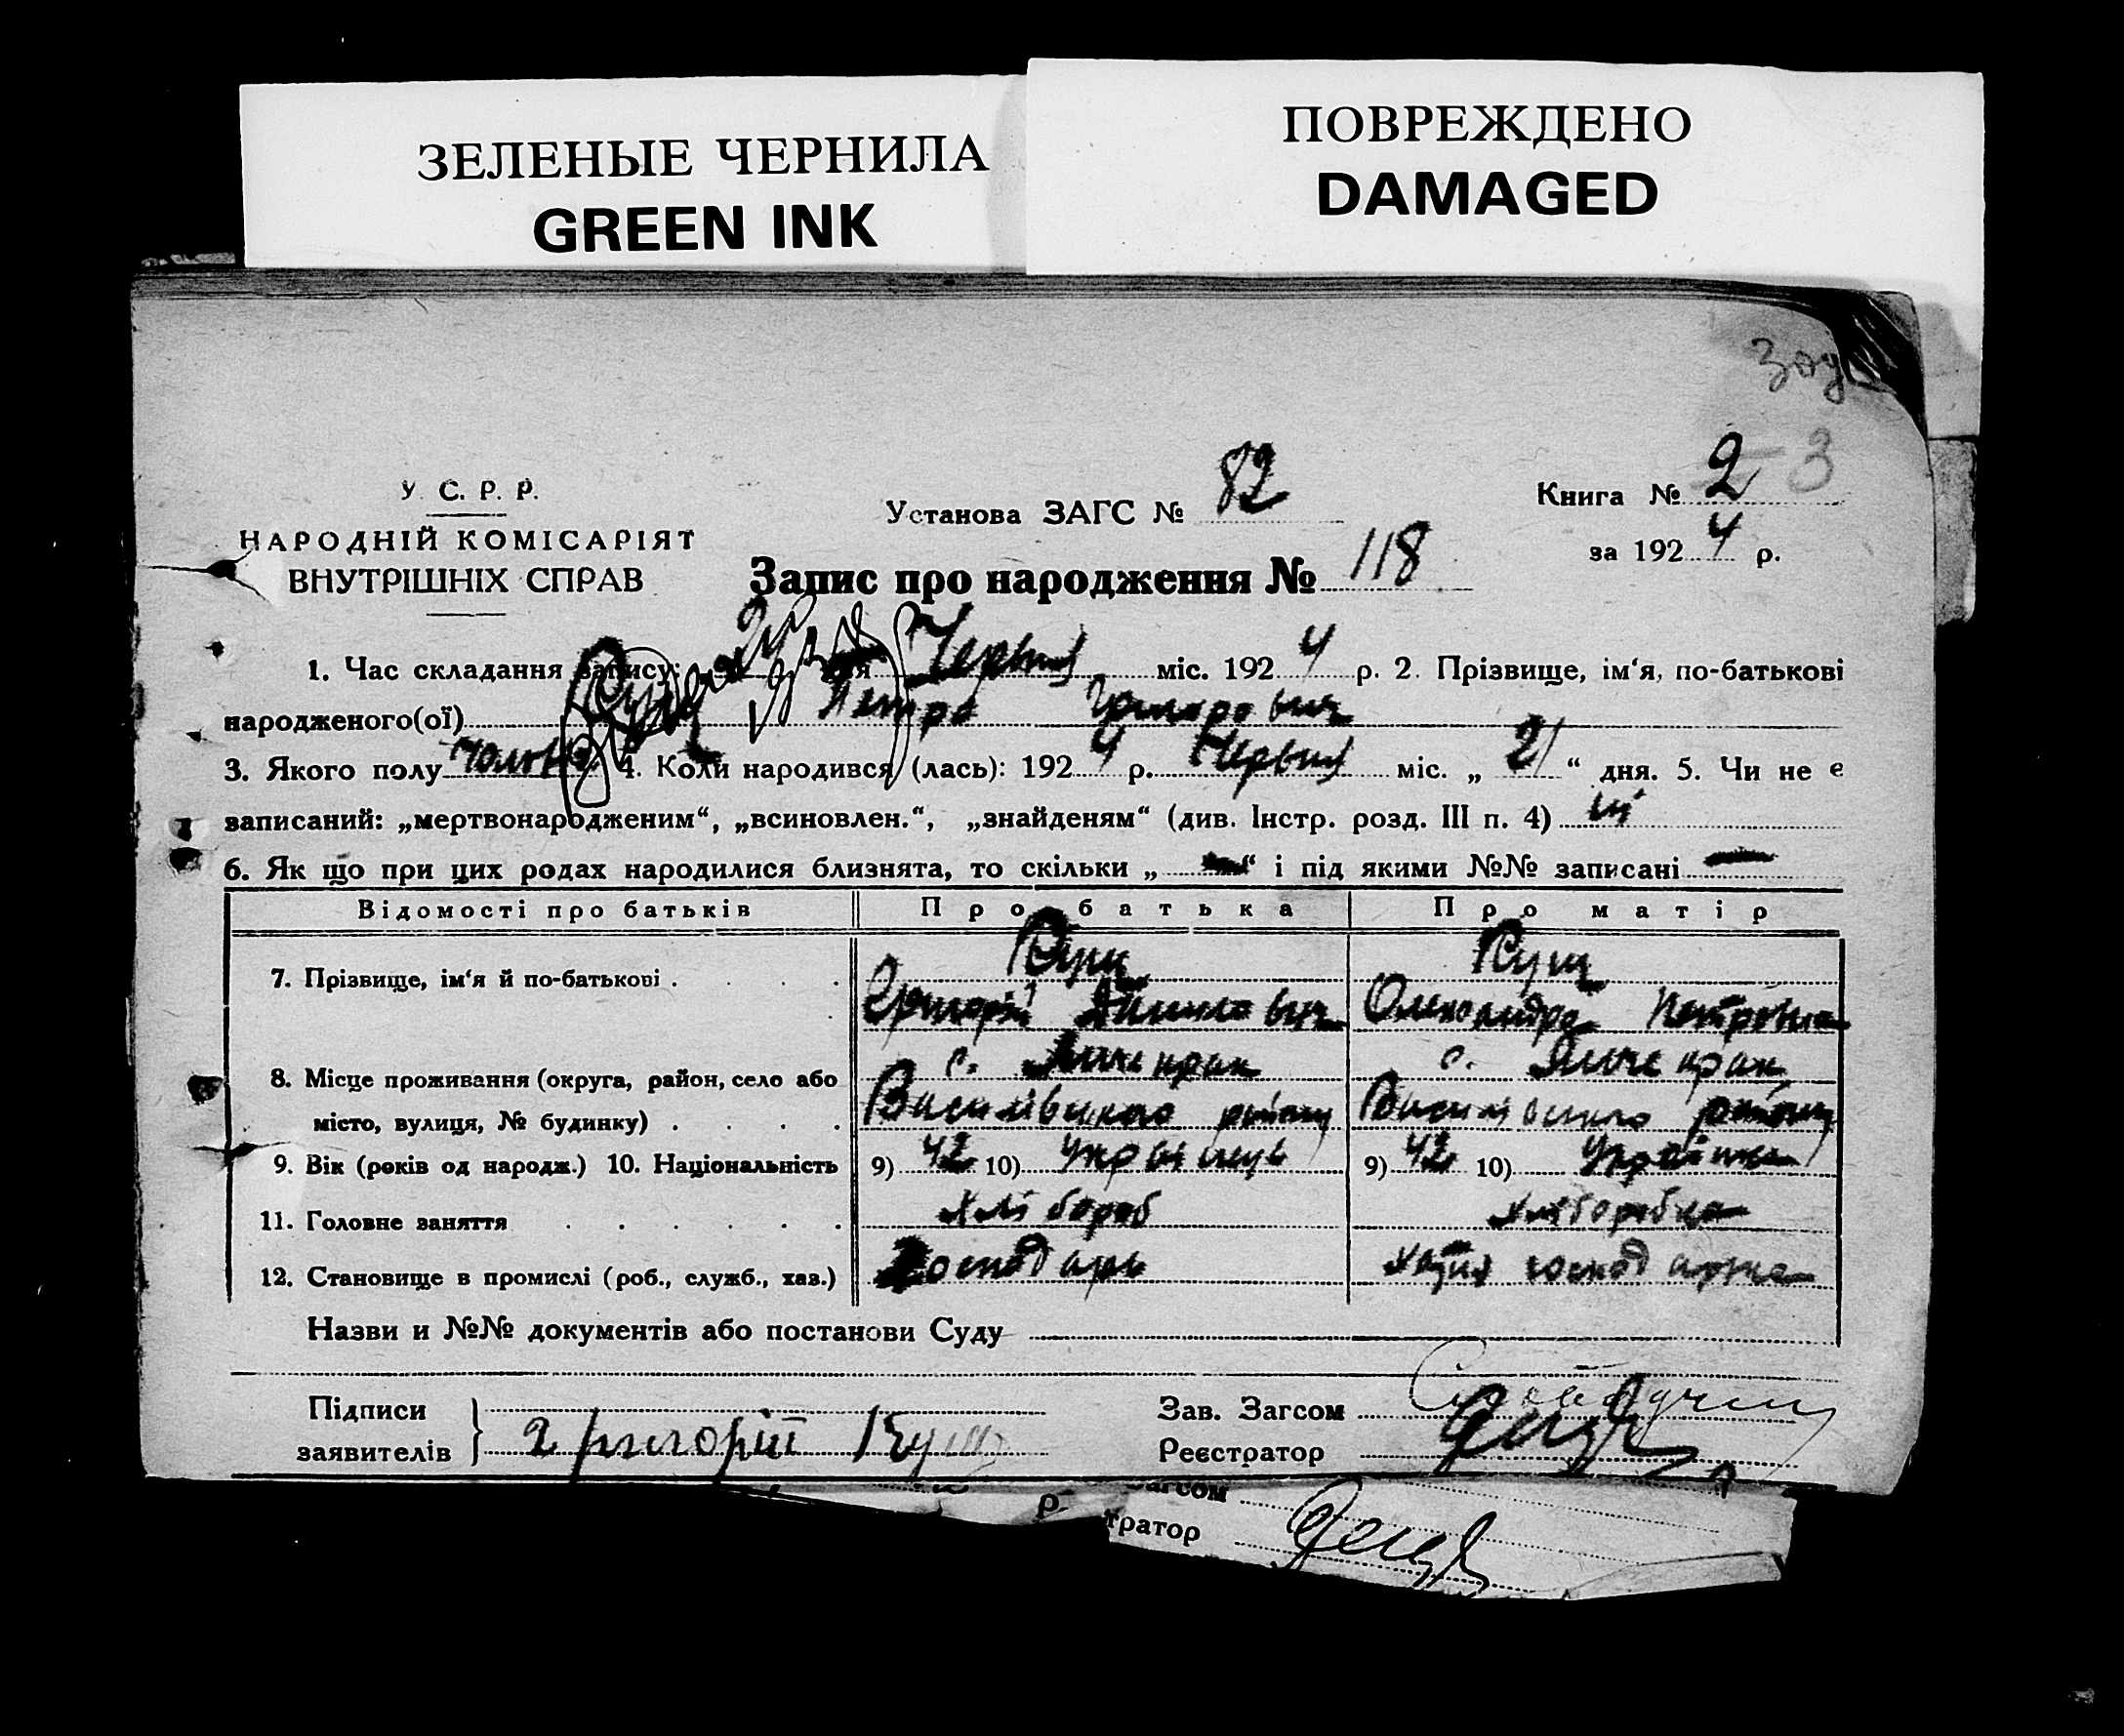 ЗЕЛЕНЫЕ ЧЕРНИЛА
GREEN INK
ПОВРЕЖДЕНО
DAMAGED
У. С. Р. Р.
НАРОДНІЙ КОМІСАРІЯТ
ВНУТРІШНІХ СПРАВ
Установа ЗАГС № 82
Книга № 2 3
за 1924 р.
Запис про народження № 118
1. Час складання запису: дня Червня міс. 1924 р. 2. Прізвище, ім‘я, по-батькові
народженого(ої) Петро Григорович
3. Якого полу 4. Коли народився (лась): 1924 р. Червня міс. „ 21 “ дня. 5. Чи не є
записаний: „мертвонародженим“, „всиновлен.“, „знайденям“ (див. Інстр. розд. III п. 4) ні
6. Як що при цих родах народилися близнята, то скільки „ — “ і під якими №№ записані —
Відомості про батьків Про батька Про матір
7. Прізвище, ім‘я й по-батькові . . . . Кущ Кущ
Григорій Данилович Олександра Петровна
8. Місце проживання (округа, район, село або с. Янчекрак с. Янчекрак
місто, вулиця, № будинку) . . . . Василівського району Василівського району
9. Вік (років од народж.) 10. Національність 9) 42 10) Українець 9) 42 10) Українка
11. Головне заняття . . . . . . хлібороб хліборобка
12. Становище в промислі (роб., служб., хаз.) Господарь господарка
Назви и №№ документів або постанови Суду
Підписи
заявителів Григорій Кущ
Зав. Загсом
Реєстратор
р.
Загсом
тратор